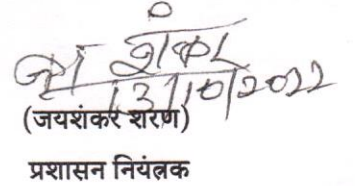 जय शंकर
13/10/2022
(जयशंकर शरण)
प्रशासन नियंत्रक